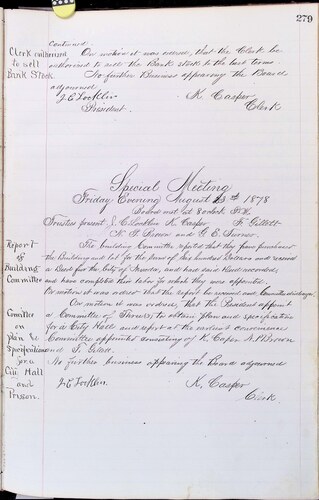 279
Continued.
Clerk authorized to sell Bank Stock
On motion it was ordered, that the Clerk be
authorized to sell the Bank stock to the best terms.
No further Business appearing the Board
adjourned
J. E. Locklin K. Casper
President. Clerk
Special Meeting
Friday Evening August 1878
Board met at 8 oclock P.M.
Trustees present J. E. Locklin K. Casper F. Gillett
and G. E.
Report of Building Committee
The building Committee report that they have purchased
the Building and lot for the sum of Six hundred Dollars and received
a Deed for the City of and had said Deed recorded,
and have completed their labor for which they was appointed.
On motion it was ordered that the report be received and Committee discharged
On motion it was ordered, That the President appoint
Comittee on plan & Specifications for a City Hall and Prison.
a Committee of Three to obtain plan and specification
for a City Hall and report at the earliest convenience
Committee appointed consisting of K. Casper Brown
and F. Gillett.
No further business appearing the Board adjourned
J. E. Locklin K. Casper
Clerk